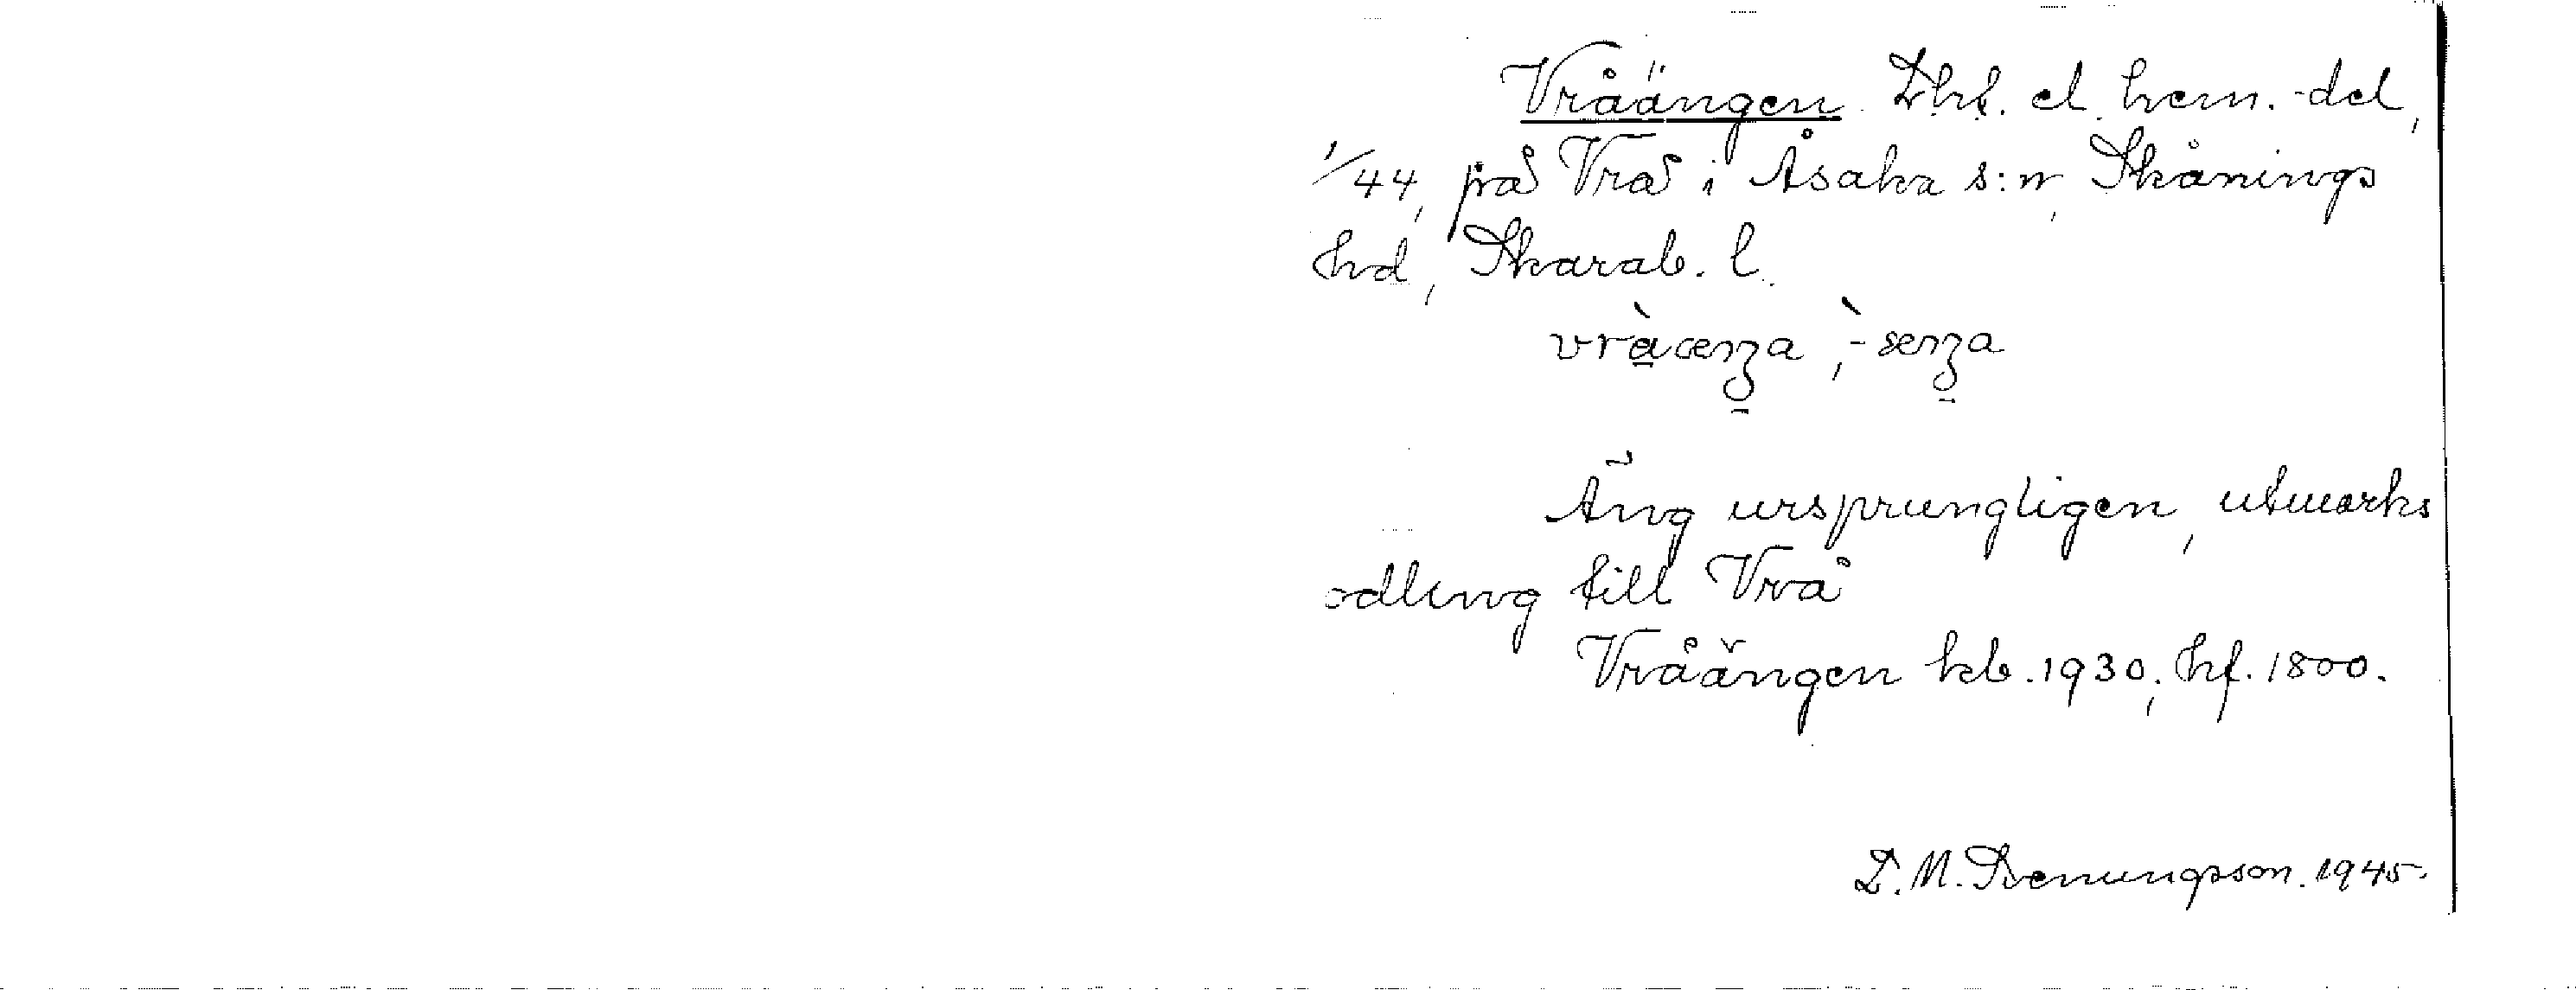 Vråängen. Lht. el. hem.-del,
1/44, på Vrå i Åsaka s:n, Skånings
hd, Skarab. l.
vràænga, -ænga
Äng ursprungligen, utmarks
odling till Vrå
Vråängen kb. 1930, hf. 1800.
D. M. Svenungsson. 1945.